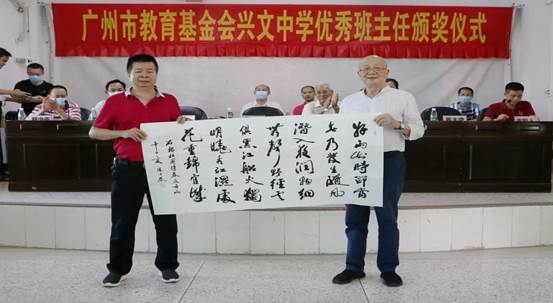 广州市教育基金会兴文中学优秀班主任颁奖仪式
好雨知时節當
春乃發生隨風
潜入夜润物细
無聲野径云
俱黑江船火獨
明曉看红濕處
花重錦官城